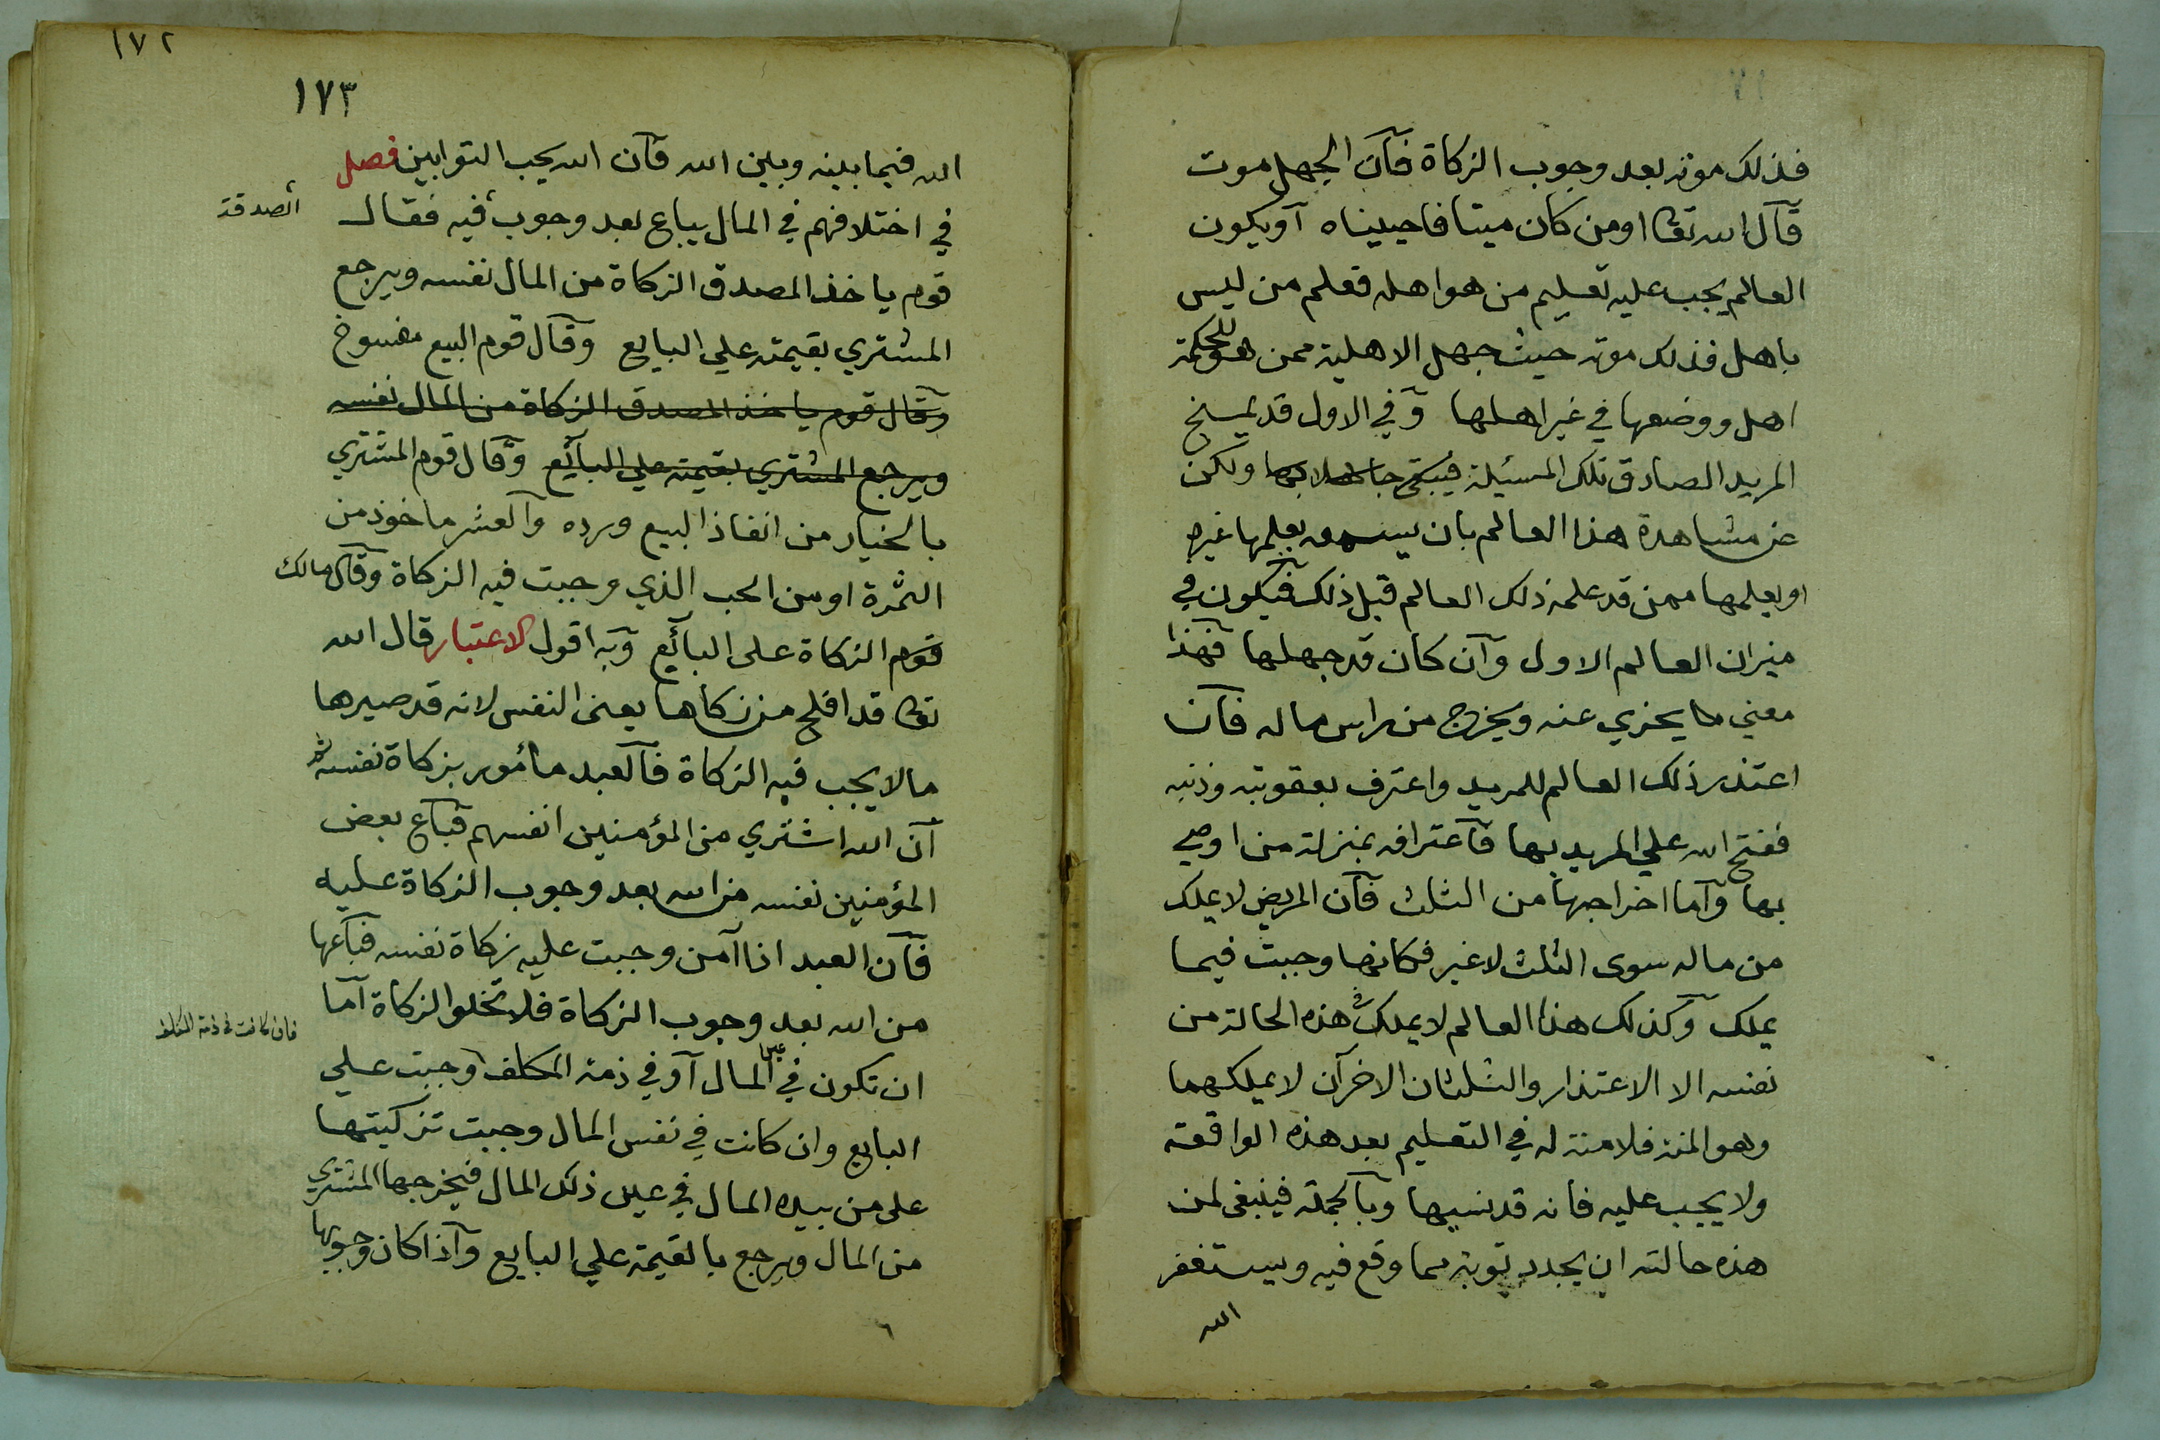 فذلك موته بعد وجوب الزكاة فآن الجهل موت
قآل الله تعا اومن كان ميتا فاحييناه آويكون
العالم يجب عليه تعليم من هو اهله فعلم من ليس
باهل فذلك موته حيث جهل الاهلية ممن هو للحكمة
اهل ووضعها في غير اهلها وفي الاول قد يمنح
المريد الصادق تلك المسئلة فيبقى جاهلا بها ولكن
عن مشاهدة هذا العالم بان يسمعه يعلمها غيره
او يعلمها ممن قد علمه ذلك العالم قبل ذلك فتكون في
ميزان العالم الاول وآن كان قد جهلها فهذا
معنى ما يجزي عنه ويخرج من راس ماله فآن
اعتذر ذلك العالم للمريد واعترف بعقوبته وذنبه
ففتح الله علي المريد بها فآعترافه بمنزلة من اوصي
بها وآما اخراجها من الثلث فآن المريض لا يملك
من ماله سوى الثلث لا غير فكانها وجبت فيما
يملك وكذلك هذا العالم لا يملك في هذه الحالة من
نفسه الا الاعتذار والثلثان الاخرآن لا يملكهما
وهو المنة فلا منة له في التعليم بعد هذه الواقعة
ولا يجب عليه فانه قد نسيها وبآلجملة فينبغي لمن
هذه حالته ان يجدد توبة مما وقع فيه ويستغفر
الله
١٧٢
١٧٣
الله فيما بينه وبين الله فآن الله يحب التوابين فصل
في اختلافهم في المال يباع بعد وجوب فيه فقال
الصدقة
قوم ياخذ المصدق الزكاة من المال نفسه ويرجع
المشتري بقيمته علي البايع وقآل قوم البيع مفسوخ
وقال قوم ياخذ المصدق الزكاة من المال نفسه
ويرجع المشتري بقيمته علي البآئع وقآل قوم المشتري
بالخيار من انفاذ البيع ورده وآلعشر ماخوذ من
الثمرة او من الحب الذي وجبت فيه الزكاة وقآل مالك
قوم الزكاة على البآئع وبه اقول الاعتبار قال الله
تعا قد افلح من زكاها يعنى النفس لانه قد صيرها
مالا يجب فيه الزكاة فآلعبد مأمور بزكاة نفسه ثم
آن الله اشتري من المؤمنين انفسهم فبآع بعض
المؤمنين نفسه من الله بعد وجوب الزكاة عليه
فآن العبد اذا آمن وجبت عليه زكاة نفسه فبآعها
من الله بعد وجوب الزكاة فلا تخلوا الزكاة آما
ان تكون في عين المال آو في ذمة المكلف وجبت علي
فان كانت في ذمة المكلف
البايع وان كانت في نفس المال وجبت تزكيتها
على من بيده المال في عين ذلك المال فيخرجها المشتري
من المال ويرجع بالقيمة علي البايع وآذا كان وجوبها
٦